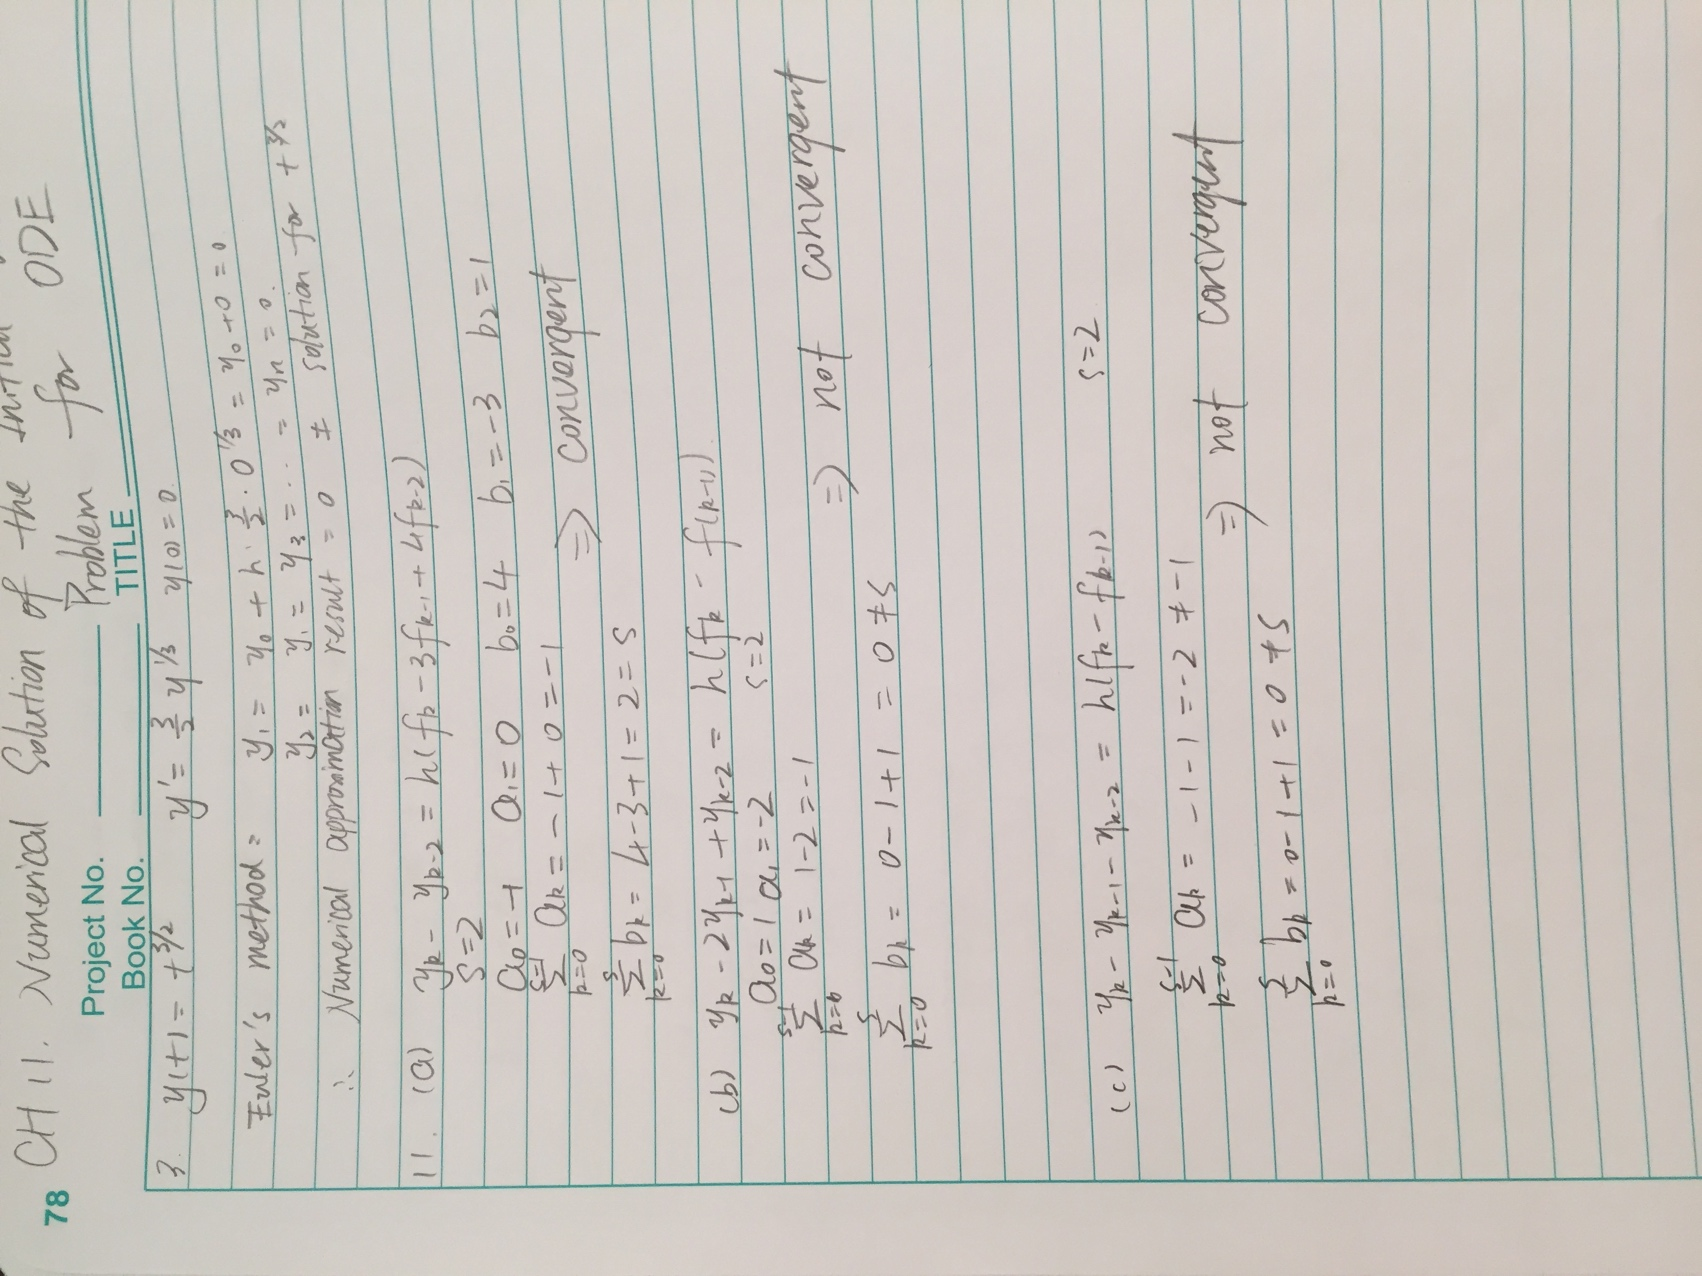 78 CH 11. Numerical Solution of the Initial
Problem for ODE
Project No.
Book No. TITLE
3. y(t) = t^{3/2} y' = \frac{3}{2} y^{1/3} y(0) = 0
Euler's method: y_1 = y_0 + h · \frac{3}{2} · 0^{1/3} = y_0 + 0 = 0.
y_2 = y_1 = y_3 = ... = y_n = 0.
∴ Numerical approximation result = 0 ≠ solution for t^{3/2}
11. (a) y_k - y_{k-2} = h(f_k - 3f_{k-1} + 4f_{k-2})
s=2
a_0 = -1 a_1 = 0 b_0 = 4 b_1 = -3 b_2 = 1
\sum_{k=0}^{s-1} a_k = -1 + 0 = -1
⇒ convergent
\sum_{k=0}^{s} b_k = 4-3+1 = 2 = s
(b) y_k - 2y_{k-1} + y_{k-2} = h(f_k - f_{(k-1)}).
a_0 = 1 a_1 = -2 s=2
\sum_{k=0}^{s-1} a_k = 1-2 = -1
⇒ not convergent
\sum_{k=0}^{s} b_k = 0-1+1 = 0 ≠ s
(c) y_k - y_{k-1} - y_{k-2} = h(f_k - f_{k-1}) s=2
\sum_{k=0}^{s-1} a_k = -1-1 = -2 ≠ -1
⇒ not convergent
\sum_{k=0}^{s} b_k = 0-1+1 = 0 ≠ s